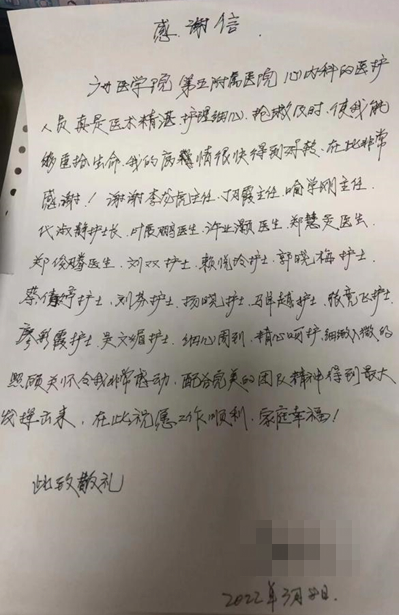 感谢信
广州医学院第五附属医院心内科的医护
人员真是医术精湛.护理细心.抢救及时.使我能
够重拾生命.我的病情很快得到好转.在此非常
感谢！谢谢李 主任. 霞主任.喻学刚主任.
代淑静护士长.叶展鹏医生.许业灏医生.郑慧 医生.
郑俊腾医生.刘双护士.赖悦玲护士.郭晓梅护士.
蔡倩婷护士.刘 护士.杨晓护士.马 护士.张亮飞护士.
廖彩霞护士吴文媚护士.细心周到.精心呵护.细致入微的
照顾关怀令我非常感动.配合完美的团队精神得到最大
发挥出来.在此祝愿工作顺利.家庭幸福！
此致敬礼
2022年3月 日.